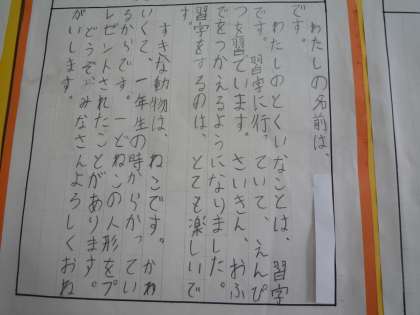 わたしの名前は、
です。
わたしのとくいなことは、習字
です。習字に行っていて、えんぴ
つを習でいます。さいきん、おふ
でをつかえるようになりました。
習字をするのは、とても楽しいで
す。
すきな動物は、ねこです。かわ
いくて、一年生の時からかってい
るからです。一どねこの人形をプ
レゼントされたことがあります。
どうぞみなさんよろしくおね
がいします。